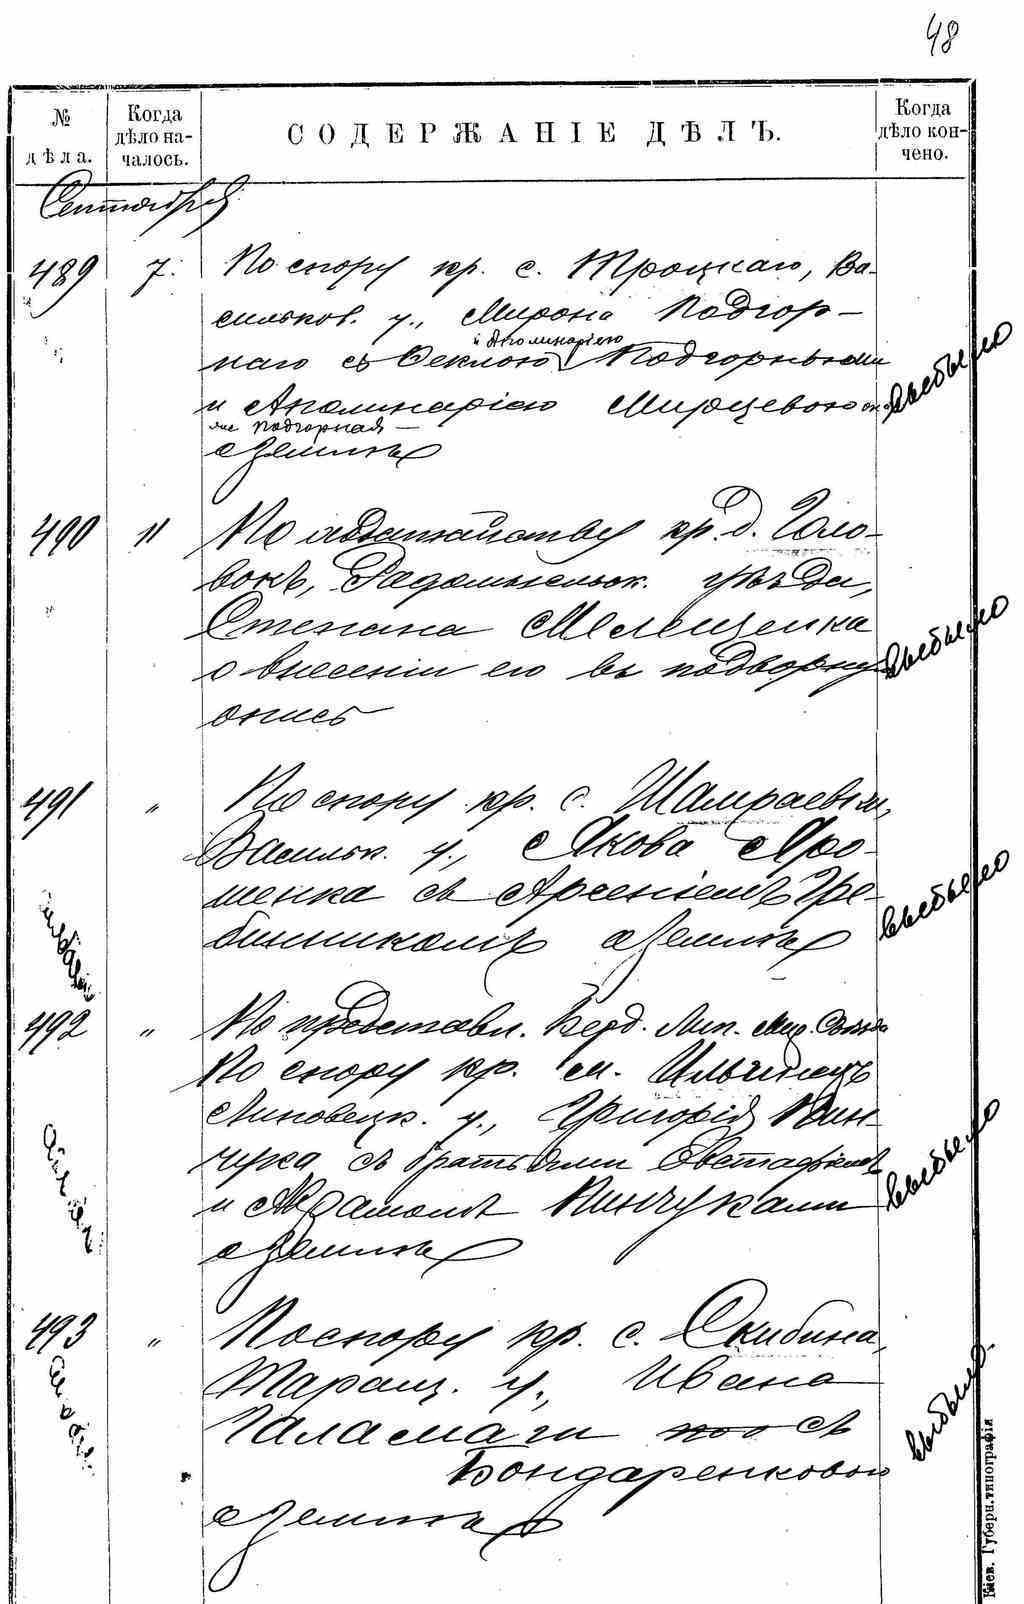 48
№ дѣла.
Когда дѣло началось.
СОДЕРЖАНІЕ ДѢЛЪ.
Когда дѣло кончено.
Сентября
489 7. По спору кр. с. Троцкаго, Ва-
сильков. у., Мирона Подгор-
и Аполинаріею
наго съ Феклою Подгорными
и Аполинаріею Мирцевою
же Подгорная
о землѣ
выбыло
490 11 По ходатайству кр. д. Голо-
вокъ, Радомысльск. уѣзда,
Степана Мелещенка
о внесеніи его въ подворную
опись
выбыло
491 " По спору кр. с. Шамраевки,
Васильк. у., Якова Яро-
шенка съ Арсеніемъ Гре-
бинникомъ о землѣ
выбыло
492 " По представл. Берд. Лип. Мир. Съѣзда
По спору кр. м. Ильинецъ
Липовецк. у., Григорія Пин-
чука съ братьями Евстафіемъ
и Пинчуками
о землѣ
выбыло
493 " По спору кр. с. Скибина,
Таращ. у., Ивана
Галамаги съ
Бондаренковою
о землѣ
выбыло.
Кіев. Губерн. типографія